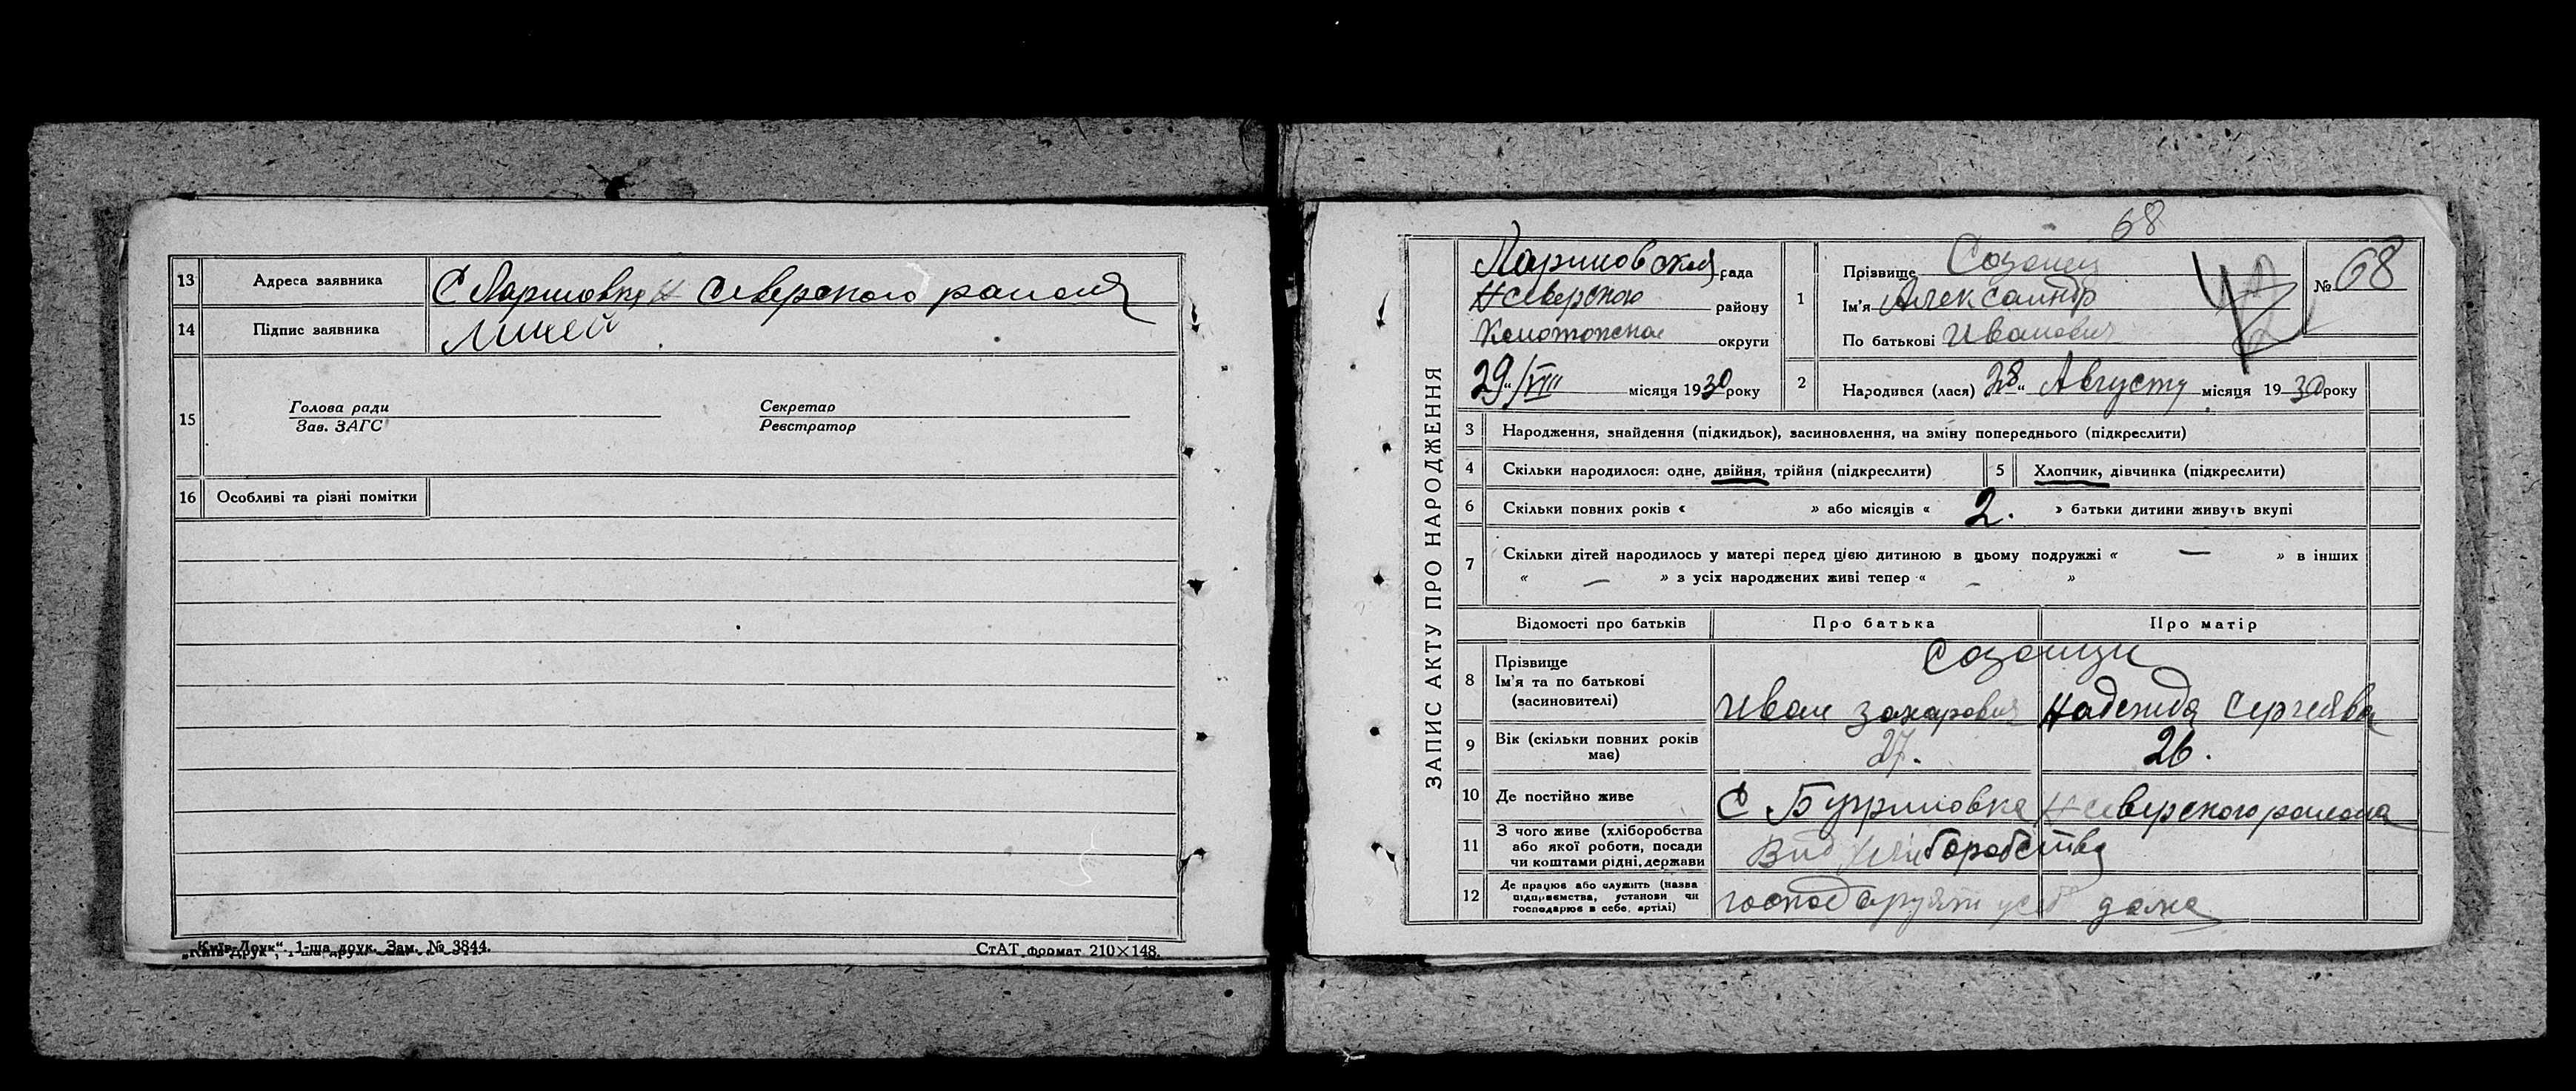 13 Адреса заявника С Лариновка Н Северского района
14 Підпис заявника
15 Голова ради Секретар
Зав. ЗАГС Реєстратор
16 Особливі та різні помітки
„Київ-Друк", 1-ша друк. Зам. № 3844. СтАТ формат 210×148.
68
ЗАПИС АКТУ ПРО НАРОДЖЕННЯ
Лариновская рада
Н Северского району
Конотопской округи
29/VIII місяця 1930 року
1 Прізвище Созонец
Ім'я Александр
По батькові Иванович
№ 68
2 Народився (лася) 28 Августу місяця 1930 року
3 Народження, знайдення (підкидьок), засиновлення, на зміну попереднього (підкреслити)
4 Скільки народилося: одне, двійня, трійня (підкреслити) 5 Хлопчик, дівчинка (підкреслити)
6 Скільки повних років « » або місяців « 2. » батьки дитини живуть вкупі
7 Скільки дітей народилось у матері перед цією дитиною в цьому подружжі « — » в інших
« — » з усіх народжених живі тепер « - »
Відомості про батьків Про батька Про матір
8 Прізвище Созонци
Ім'я та по батькові
(засиновителі) Иван Захарович Надежда Сергеевна
9 Вік (скільки повних років має) 27. 26.
10 Де постійно живе С Н Северского района
11 З чого живе (хліборобства
або якої роботи, посади
чи коштами рідні, держави Вид хлиборобства
12 Де працює або служить (назва
підприємства, установи чи
господарює в себе, артілі) дома